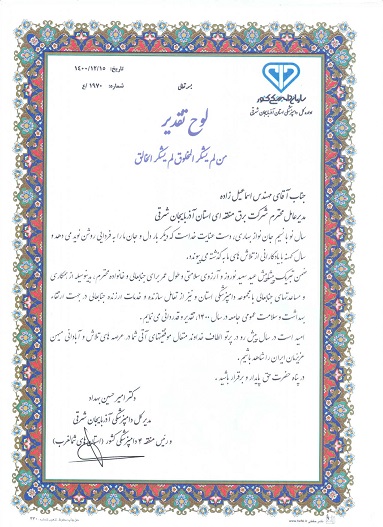 تاریخ: ۱۴۰۰/۱۲/۱۵
شماره: ۱۹۷۰ /ع
بسمه تعالی
سازمان دامپزشکی کشور
اداره کل دامپزشکی استان آذربایجان شرقی
لوح تقدیر
من لم یشکر المخلوق لم یشکر الخالق
جناب آقای مهندس اسماعیل زاده
مدیرعامل محترم شرکت برق منطقه ای استان آذربایجان شرقی
سال نو با نسیم جان نواز بهاری، دست عنایت خداست که دیگر بار دل و جان ما را به فردایی روشن نوید می دهد و
سال کهنه با یادگارانی از تلاش های ما به گذشته می پیوندد.
ضمن تبریک پیشاپیش عید سعید نوروز و آرزوی سلامتی و طول عمر برای جنابعالی و خانواده محترم، بدینوسیله از همکاری
و مساعدتهای جنابعالی با مجموعه دامپزشکی استان و نیز از تعامل سازنده و خدمات ارزنده جنابعالی در جهت ارتقاء
بهداشت و سلامت عمومی جامعه در سال ۱۴۰۰، تقدیر و قدردانی می نمایم.
امید است در سال پیش رو در پرتو الطاف خداوند متعال موفقیتهای آتی شما در عرصه های تلاش و آبادانی میهن
عزیزمان ایران را شاهد باشیم.
در پناه حضرت حق پایدار و برقرار باشید.
دکتر امیر حسین بهداد
مدیرکل دامپزشکی آذربایجان شرقی
و رئیس منطقه ۴ دامپزشکی کشور (استان های شمالغرب)